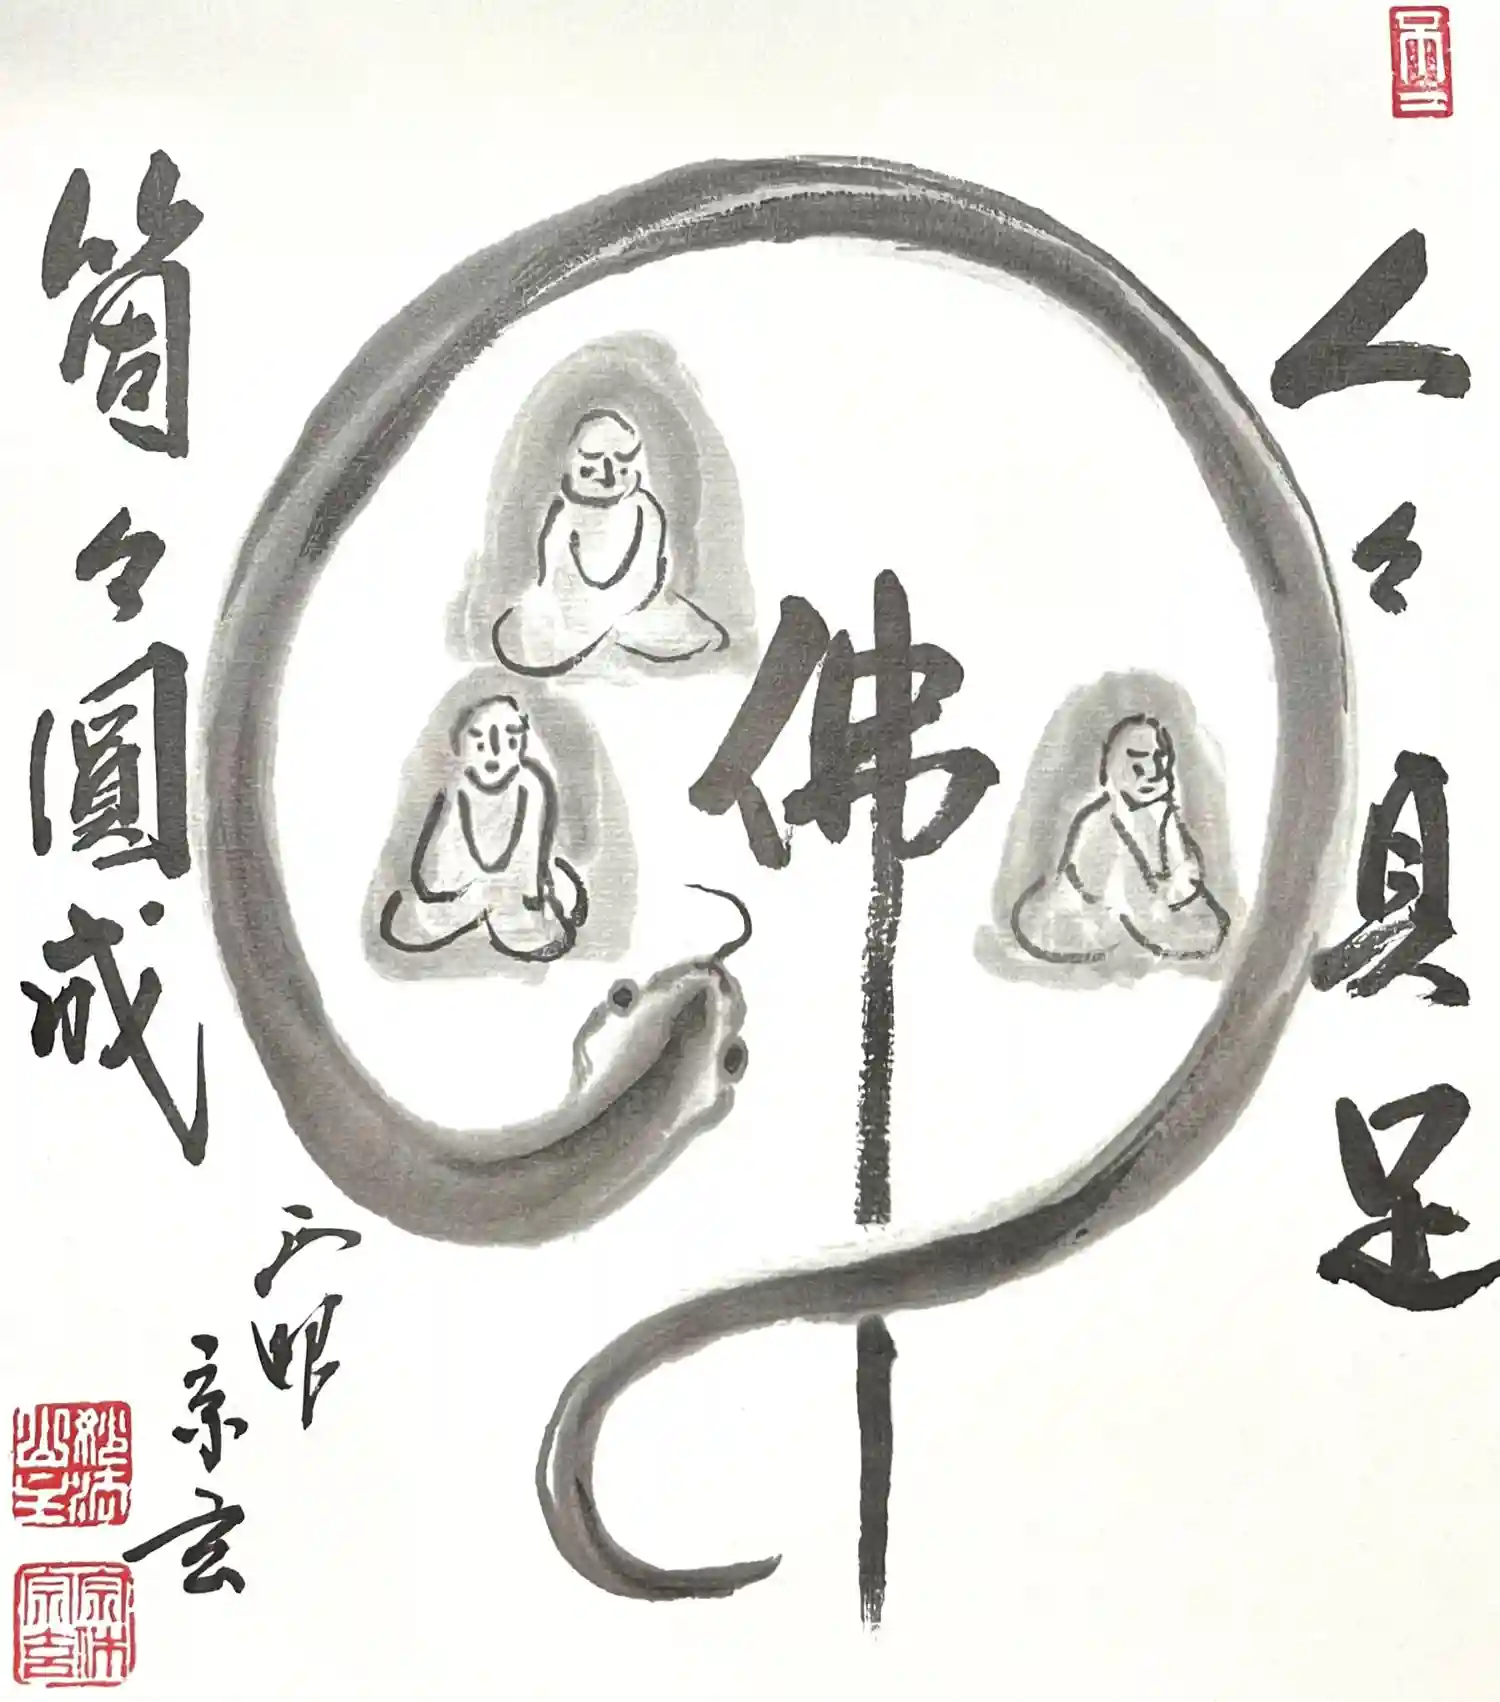 人々具足
佛
箇々圓成
正眼
宗玄